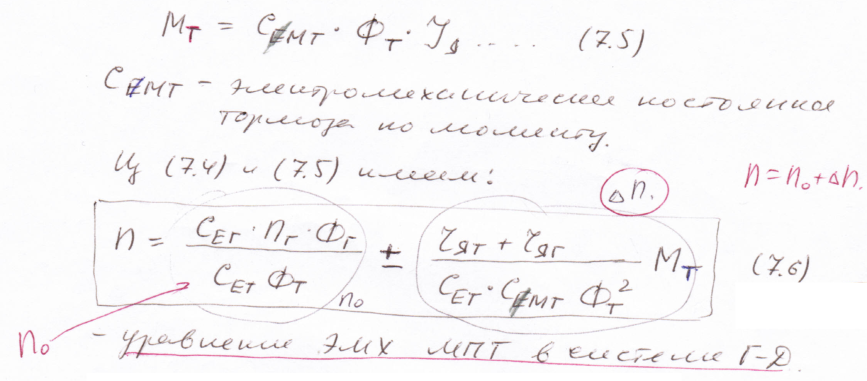 Mт = CMT · Фт · Jя .... (7.5)
CMT – электромеханическая постоянная
тормоза по моменту.
Из (7.4) и (7.5) имеем:
Δn. n = n₀ + Δn.
n = (CЕГ · nГ · ФГ) / (CЕТ ФТ) ± (rЯТ + rЯГ) / (CЕТ · CMT ФТ²) MТ (7.6)
n₀
n₀ – уравнение ЭМХ МПТ в системе Г-Д.